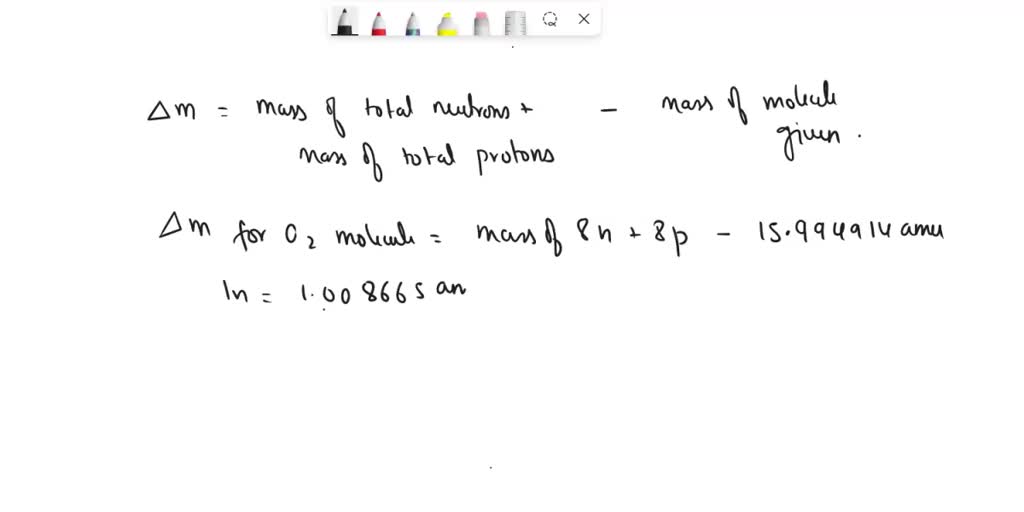 Δm = mass of total neutrons + - mass of molecule
mass of total protons given.
Δm for O2 molecule = mass of 8n + 8p - 15.994914 amu
1n = 1.008665 am